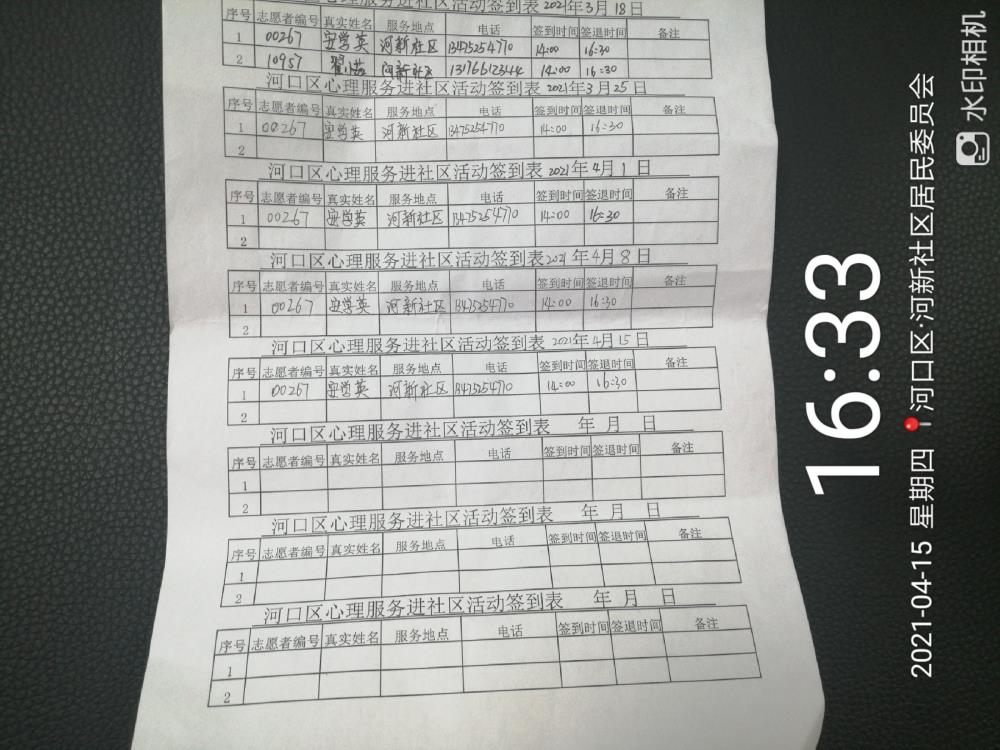 河口区心理服务进社区活动签到表 2021年3月18日
序号 志愿者编号 真实姓名 服务地点 电话 签到时间 签退时间 备注
1 00267 安学英 河新社区 13475254770 14:00 16:30
2 10957 河新社区 14:00 16:30
河口区心理服务进社区活动签到表 2021年3月25日
序号 志愿者编号 真实姓名 服务地点 电话 签到时间 签退时间 备注
1 00267 安学英 河新社区 13475254770 14:00 16:30
2
河口区心理服务进社区活动签到表 2021年4月1日
序号 志愿者编号 真实姓名 服务地点 电话 签到时间 签退时间 备注
1 00267 安学英 河新社区 13475254770 14:00 16:30
2
河口区心理服务进社区活动签到表 2021年4月8日
序号 志愿者编号 真实姓名 服务地点 电话 签到时间 签退时间 备注
1 00267 安学英 河新社区 13475254770 14:00 16:30
2
河口区心理服务进社区活动签到表 2021年4月15日
序号 志愿者编号 真实姓名 服务地点 电话 签到时间 签退时间 备注
1 00267 安学英 河新社区 13475254770 14:00 16:30
2
河口区心理服务进社区活动签到表 年 月 日
序号 志愿者编号 真实姓名 服务地点 电话 签到时间 签退时间 备注
1
2
河口区心理服务进社区活动签到表 年 月 日
序号 志愿者编号 真实姓名 服务地点 电话 签到时间 签退时间 备注
1
2
河口区心理服务进社区活动签到表 年 月 日
序号 志愿者编号 真实姓名 服务地点 电话 签到时间 签退时间 备注
1
2
16:33
2021-04-15 星期四 河口区·河新社区居民委员会
水印相机